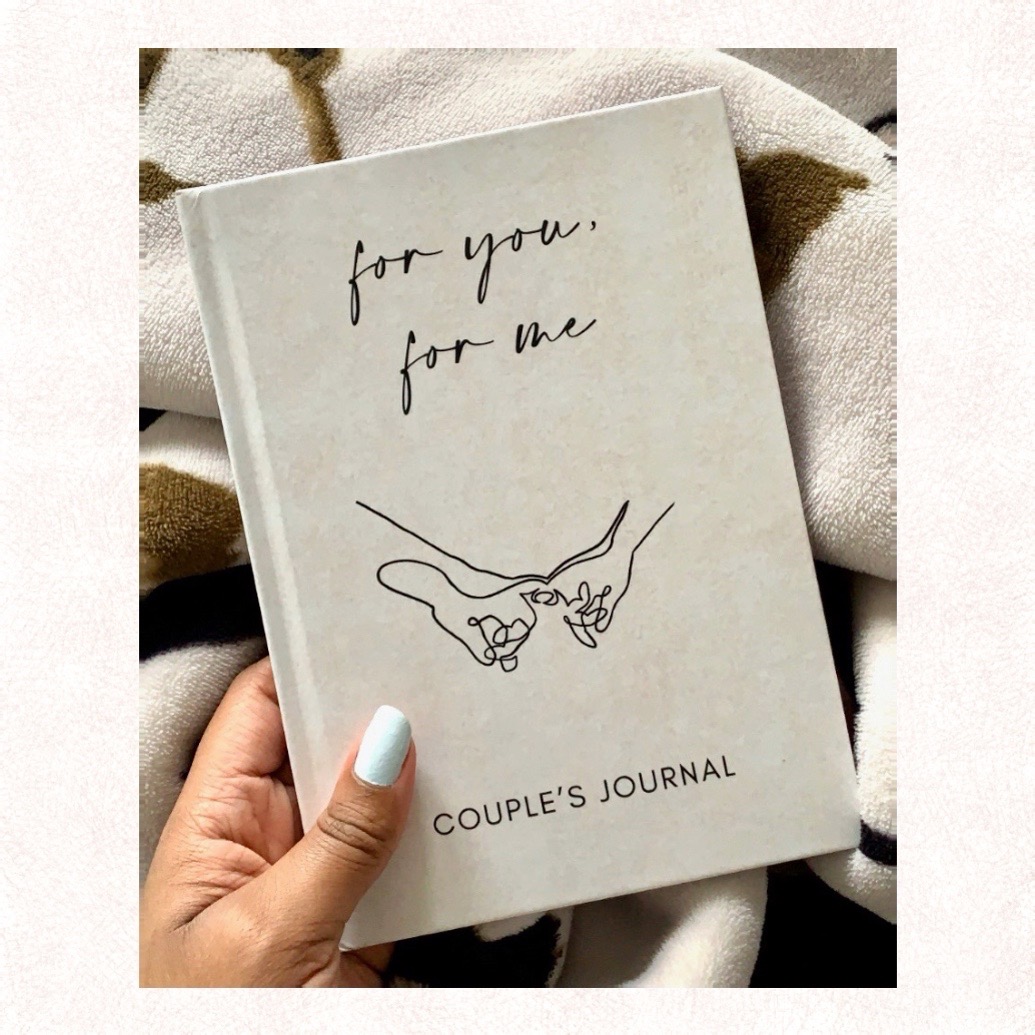 for you,
for me
COUPLE'S JOURNAL